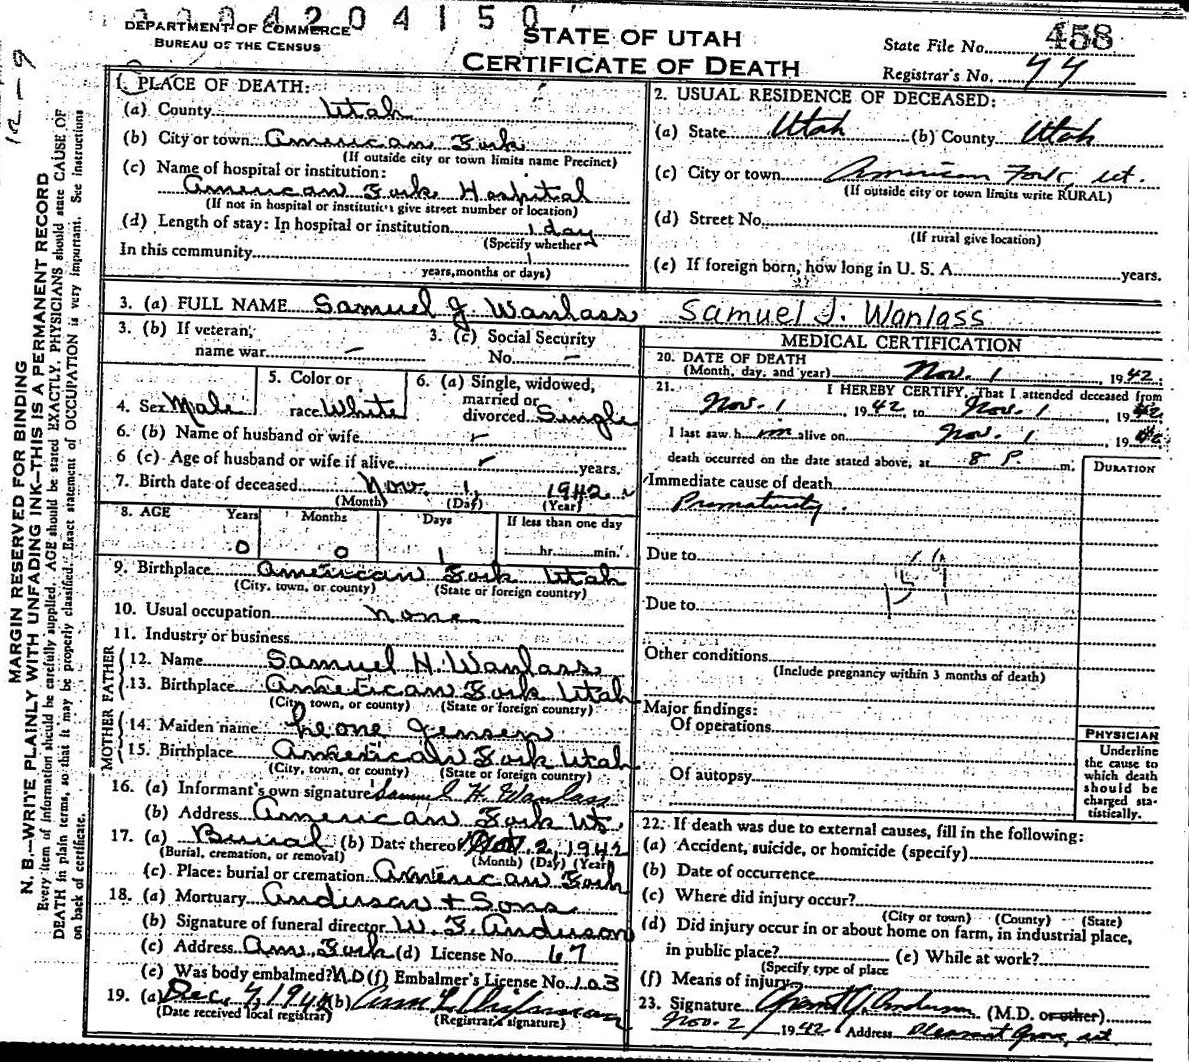 0004204150
DEPARTMENT OF COMMERCE
BUREAU OF THE CENSUS
STATE OF UTAH
CERTIFICATE OF DEATH
State File No. 458
Registrar's No. 77
12-9
MARGIN RESERVED FOR BINDING
N. B.—WRITE PLAINLY WITH UNFADING INK—THIS IS A PERMANENT RECORD
Every item of information should be carefully supplied. AGE should be stated EXACTLY. PHYSICIANS should state CAUSE OF
DEATH in plain terms, so that it may be properly classified. Exact statement of OCCUPATION is very important. See instructions
on back of certificate.
1. PLACE OF DEATH:
(a) County Utah
(b) City or town American Fork
(If outside city or town limits name Precinct)
(c) Name of hospital or institution:
American Fork Hospital
(If not in hospital or institution give street number or location)
(d) Length of stay: In hospital or institution 1 day
(Specify whether
In this community 1
years, months or days)
2. USUAL RESIDENCE OF DECEASED:
(a) State Utah (b) County Utah
(c) City or town American Fork, ut.
(If outside city or town limits write RURAL)
(d) Street No.
(If rural give location)
(e) If foreign born, how long in U. S. A. years.
3. (a) FULL NAME Samuel J. Wanlass Samuel J. Wanlass
3. (b) If veteran, name war —
3. (c) Social Security No. —
4. Sex Male
5. Color or race White
6. (a) Single, widowed, married or divorced Single
6. (b) Name of husband or wife
6 (c) Age of husband or wife if alive years.
7. Birth date of deceased Nov. 1, 1942
(Month) (Day) (Year)
8. AGE Years Months Days If less than one day
0 0 1 hr. min.
9. Birthplace American Fork Utah
(City, town, or county) (State or foreign country)
10. Usual occupation none
11. Industry or business
FATHER
12. Name Samuel H. Wanlass
13. Birthplace American Fork Utah
(City, town, or county) (State or foreign country)
MOTHER
14. Maiden name Leone Jensen
15. Birthplace American Fork Utah
(City, town, or county) (State or foreign country)
16. (a) Informant's own signature Samuel H. Wanlass
(b) Address American Fork Ut.
17. (a) Burial (b) Date thereof Nov. 2, 1942
(Burial, cremation, or removal) (Month) (Day) (Year)
(c) Place: burial or cremation American Fork
18. (a) Mortuary Anderson + Sons
(b) Signature of funeral director W. F. Anderson
(c) Address Am. Fork (d) License No. 67
(e) Was body embalmed? No (f) Embalmer's License No. 103
19. (a) Dec. 7, 194 (b)
(Date received local registrar) (Registrar's signature)
MEDICAL CERTIFICATION
20. DATE OF DEATH
(Month, day, and year) Nov. 1, 1942
21. I HEREBY CERTIFY, That I attended deceased from
Nov. 1, 1942 to Nov. 1, 1942
I last saw him alive on Nov. 1, 1942
death occurred on the date stated above, at 8 P. m.
DURATION
Immediate cause of death
Prematurity.
Due to
159
Due to
Other conditions
(Include pregnancy within 3 months of death)
Major findings:
Of operations
Of autopsy
PHYSICIAN
Underline
the cause to
which death
should be
charged sta-
tistically.
22. If death was due to external causes, fill in the following:
(a) Accident, suicide, or homicide (specify)
(b) Date of occurrence
(c) Where did injury occur?
(City or town) (County) (State)
(d) Did injury occur in or about home on farm, in industrial place,
in public place? (e) While at work?
(Specify type of place
(f) Means of injury
23. Signature Grant Y. Anderson (M.D. or other)
Nov. 2 1942 Address Pleasant Grove, ut